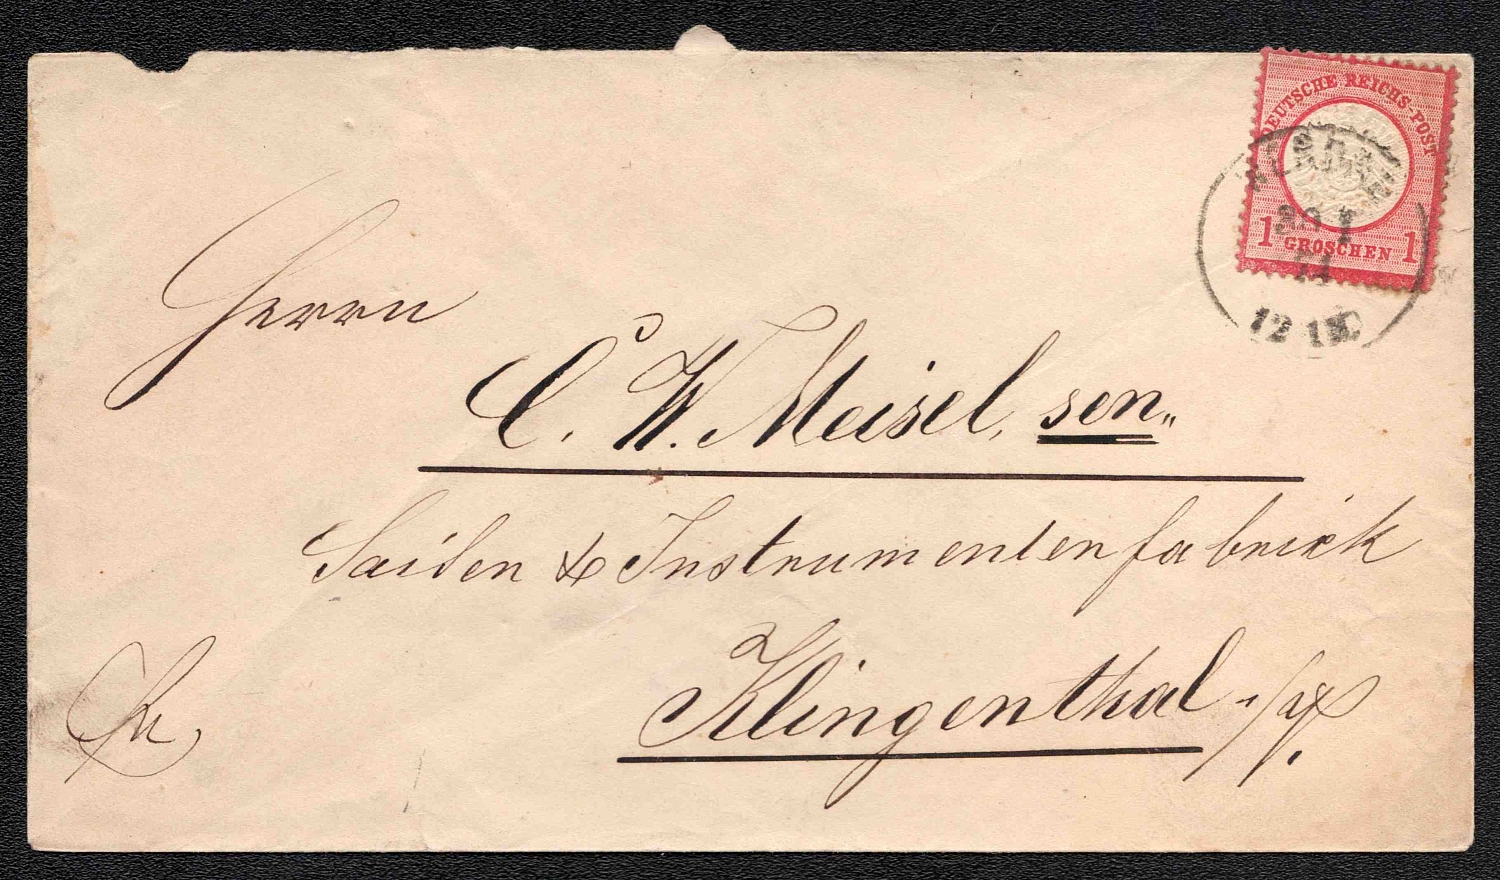 DEUTSCHE REICHS-POST
1 GROSCHEN 1
12 1
Herrn
C. W. Meisel, sen.
Saiten & Instrumentenfabrick
Klingenthal i/S.
Fr.